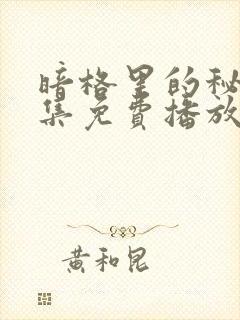 暗格里的秘
集免费播放
黄和昆